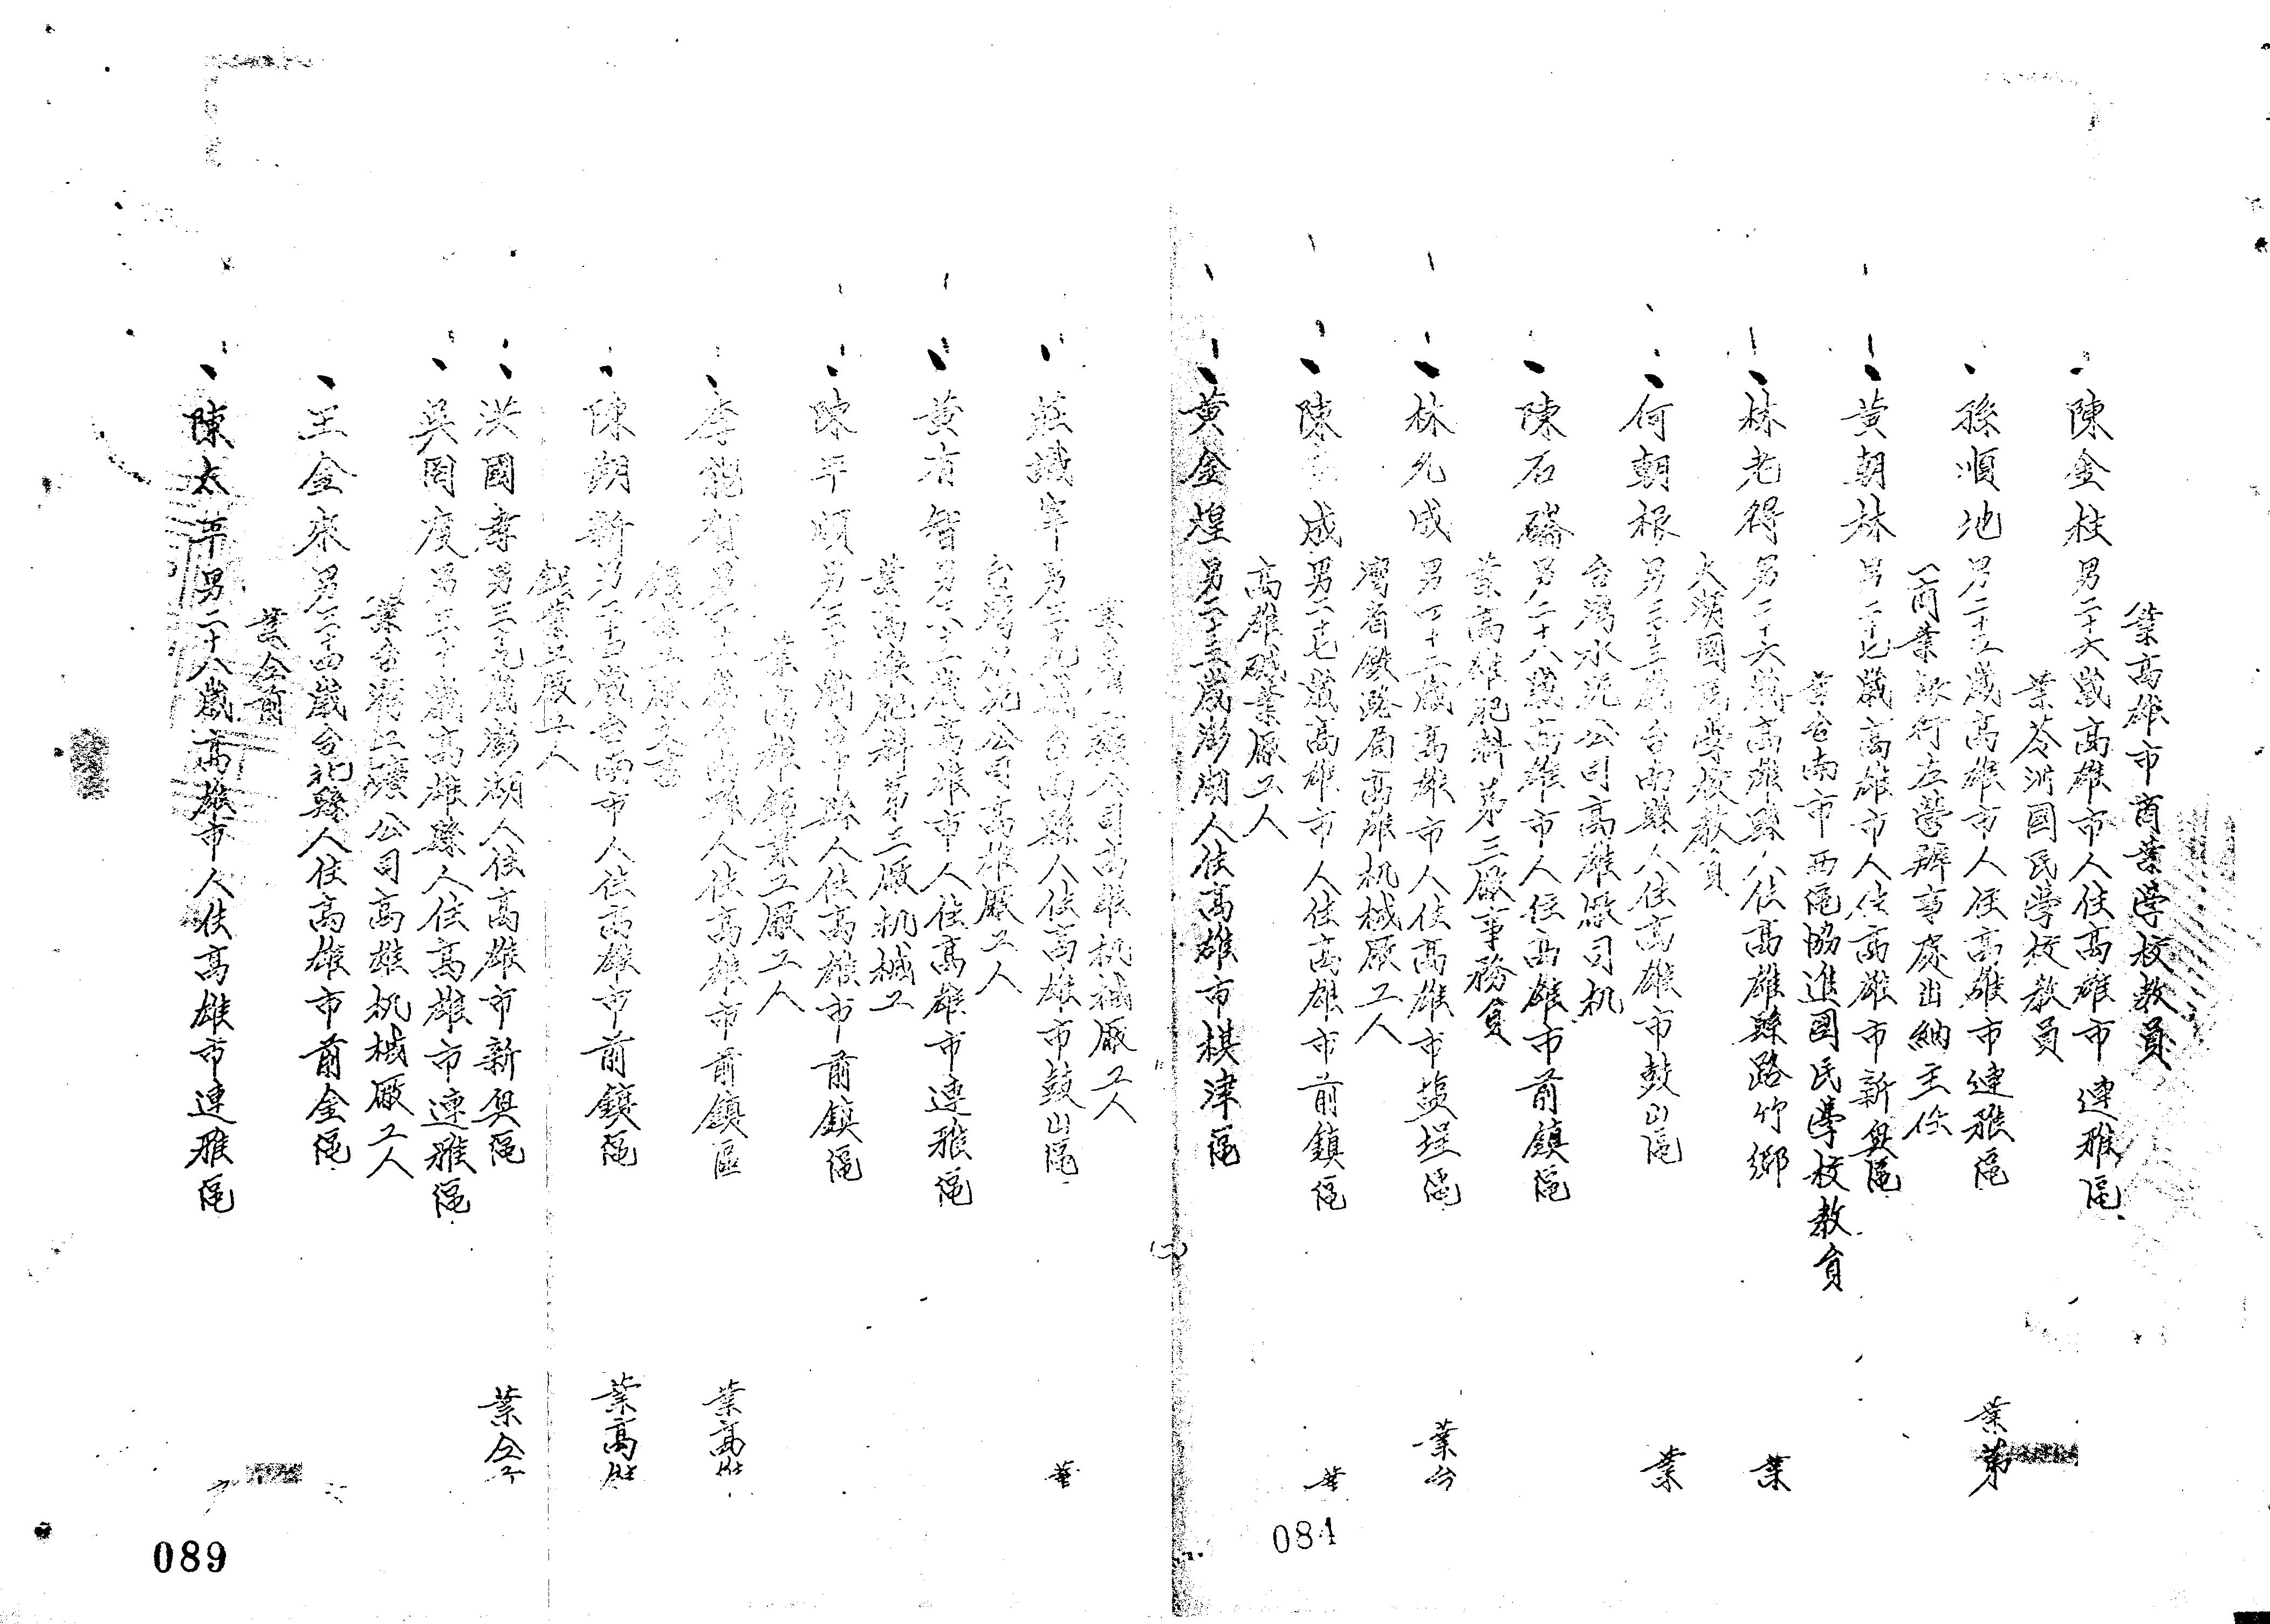 業高雄市商業學校教員
陳金柱男二十六歲高雄市人住高雄市連雅區
業苓洲國民學校教員
孫順地男二十五歲高雄市人住高雄市連雅區 業第
一商業銀行左營辦事處出納主任
黃朝林男二十七歲高雄市人住高雄市新興區
業台南市西區協進國民學校教員
林老得男二十六歲高雄縣人住高雄縣路竹鄉 業
大湖國民學校教員
何朝根男三十三歲台南縣人住高雄市鼓山區 業
台灣水泥公司高雄廠司机
陳石磷男二十八歲高雄市人住高雄市前鎮區
業高雄肥料第三廠事務員
林允成男四十二歲高雄市人住高雄市塩埕區 業台
灣省鐵路局高雄机械廠工人
陳 成男二十七歲高雄市人住高雄市前鎮區 業
高雄碱業廠工人
黃金煌男二十三歲澎湖人住高雄市棋津區
業台 公司高雄机械廠工人
莊識宰男三十九歲台南縣人住高雄市鼓山區 業
台灣水泥公司高雄廠工人
黃有智男 高雄市人住高雄市連雅區
業高雄肥料第三廠机械工
陳平順男三十 歲 縣人住高雄市前鎮區
業高雄鋁業工廠工人
李能智男 歲台南縣人住高雄市前鎮區 業高雄
鋁業工廠文書
陳朝新男二十 歲台南市人住高雄市前鎮區 業高雄
鋁業工廠工人
洪國壽男三十九歲澎湖人住高雄市新興區 業仝
吳罔度男五十歲高雄縣人住高雄市連雅區
業台灣 公司高雄机械廠工人
王金來男三十四歲台北縣人住高雄市前金區
業仝前
陳太平男二十八歲高雄市人住高雄市連雅區
(二)
084
089